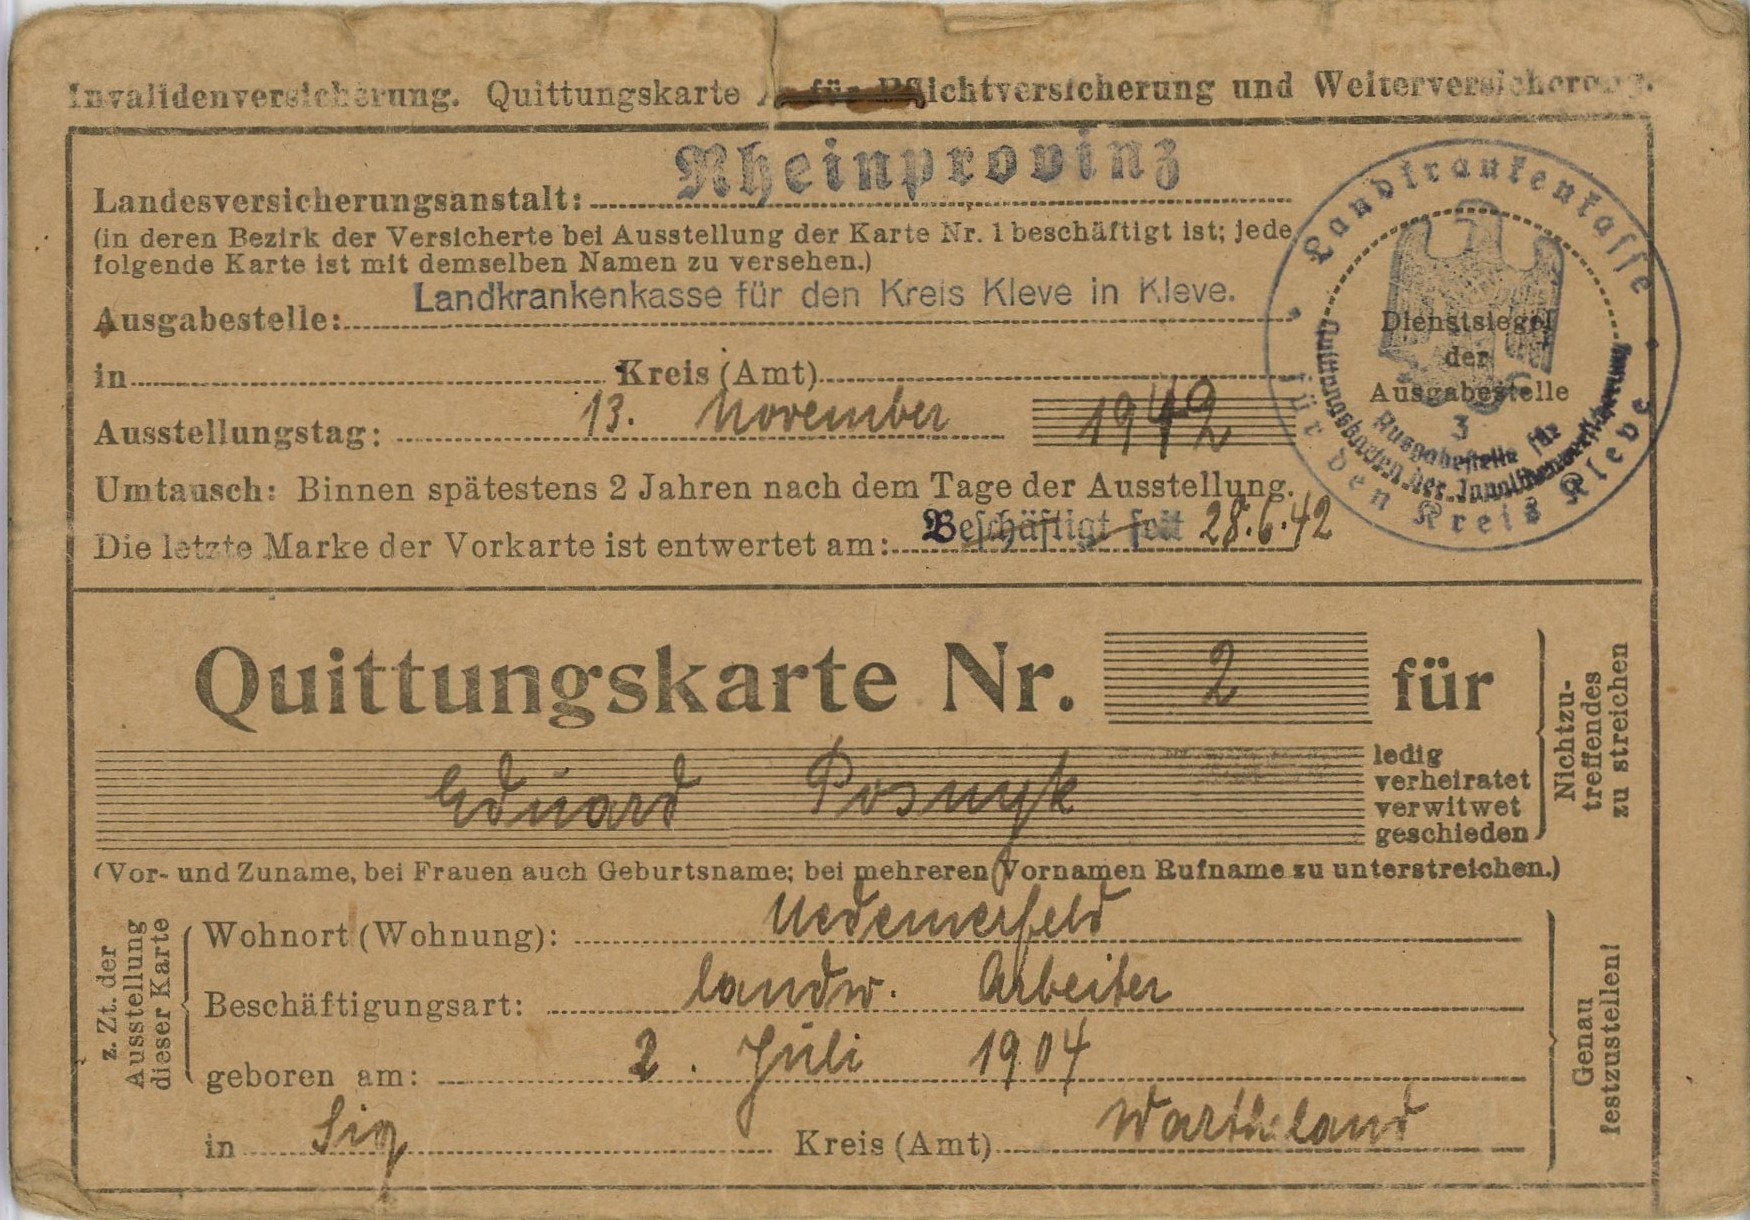 Invalidenversicherung. Quittungskarte für Pflichtversicherung und Weiterversicherung.
Landesversicherungsanstalt: Rheinprovinz
(in deren Bezirk der Versicherte bei Ausstellung der Karte Nr. 1 beschäftigt ist; jede
folgende Karte ist mit demselben Namen zu versehen.)
Ausgabestelle: Landkrankenkasse für den Kreis Kleve in Kleve.
in Kreis (Amt)
Ausstellungstag: 13. November 1942
Umtausch: Binnen spätestens 2 Jahren nach dem Tage der Ausstellung.
Die letzte Marke der Vorkarte ist entwertet am: Beschäftigt seit 28.6.42
Landkrankenkasse
für den Kreis Kleve
Dienstsiegel
der
Ausgabestelle
3
Ausgabestelle für
Quittungskarten der Invalidenversicherung
Quittungskarte Nr. 2 für
Eduard Posnyk
ledig
verheiratet
verwitwet
geschieden
Nichtzu-
treffendes
zu streichen
(Vor- und Zuname, bei Frauen auch Geburtsname; bei mehreren Vornamen Rufname zu unterstreichen.)
z. Zt. der
Ausstellung
dieser Karte
Wohnort (Wohnung): Uedemerfeld
Beschäftigungsart: landw. Arbeiter
geboren am: 2. Juli 1904
in Kreis (Amt) Wartheland
Genau
festzustellen!